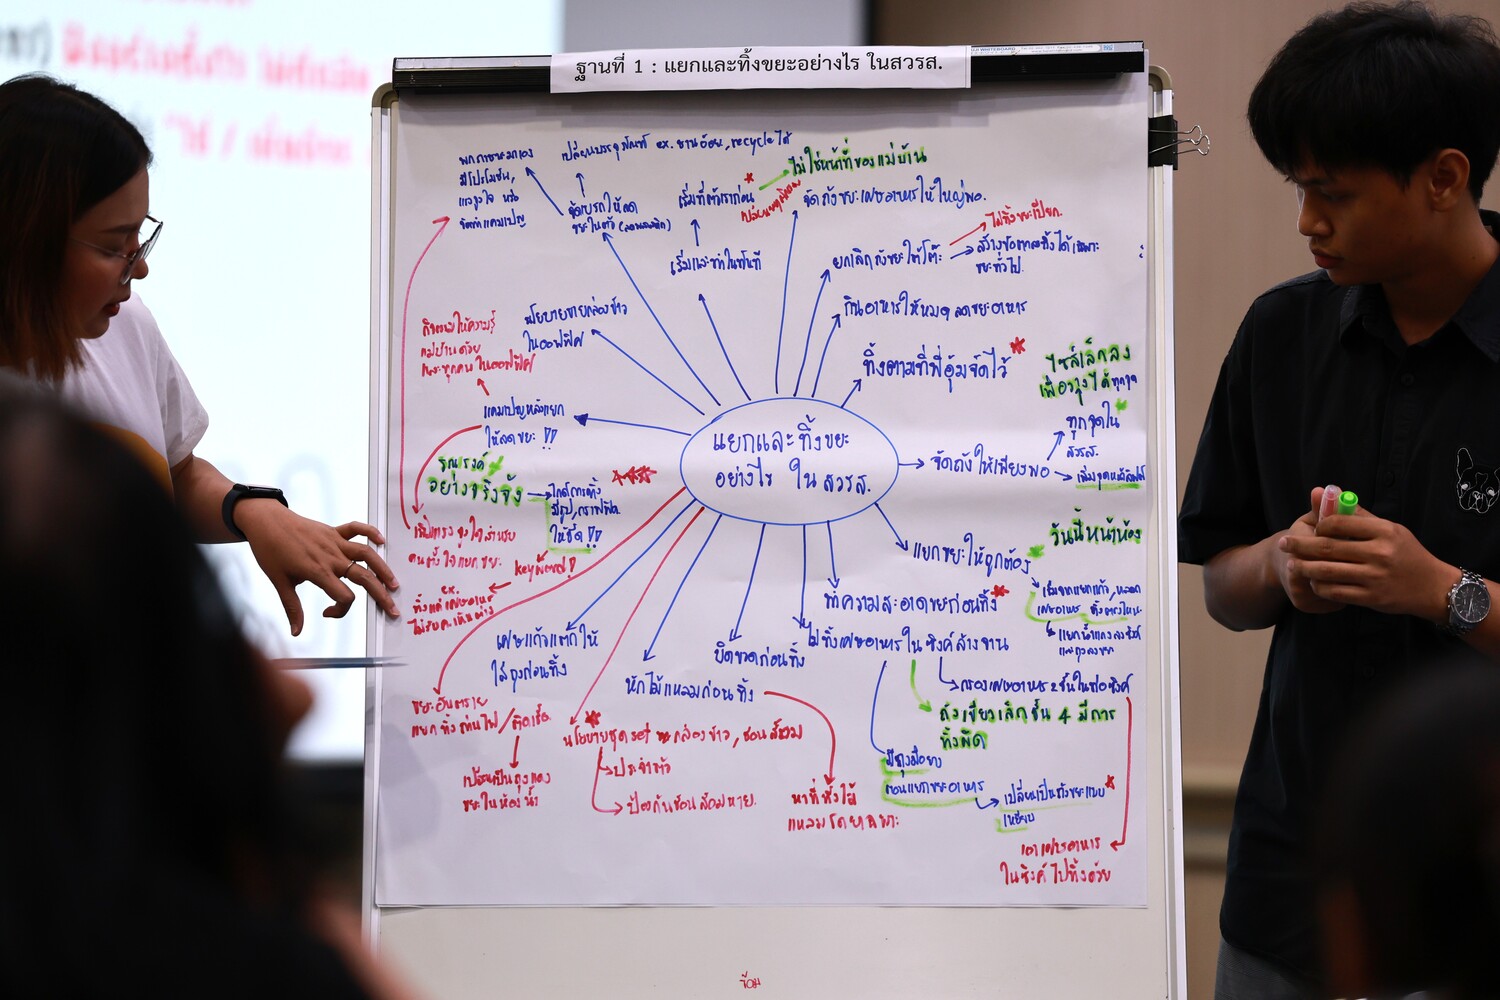 ฐานที่ 1 : แยกและทิ้งขยะอย่างไร ในสวรส.
แยกและทิ้งขยะ
อย่างไร ใน สวรส.
พกภาชนะมาเอง
มีโปรโมชั่น,
แรงจูงใจ หรือ
จัดทำแคมเปญ
เปลี่ยนบรรจุภัณฑ์ ex. ชานอ้อย, recycle ได้
จัดเบรกให้ลด
ขยะในตัว (ลดพลาสติก)
เริ่มที่ตัวเราก่อน
ไม่ใช่หน้าที่ของแม่บ้าน
เริ่มและทำในทันที
จัดถังขยะเศษอาหารให้ใหญ่พอ.
ยกเลิกถังขยะใต้โต๊ะ
ไม่ทิ้งขยะเปียก.
สร้างข้อตกลงทิ้งได้เฉพาะ
ขยะทั่วไป.
กินอาหารให้หมด ลดขยะอาหาร
ทิ้งตามที่พี่อุ้มจัดไว้
ไซส์เล็กลง
เพื่อวางได้ทุกจุด
ทุกจุดใน
สวรส.
จัดถังให้เพียงพอ
นโยบายขายกล่องข้าว
ในออฟฟิศ
กิจกรรมให้ความรู้
แม่บ้านด้วย
และทุกคน ในออฟฟิศ
แคมเปญหลังแยก
ให้ลดขยะ !!
รณรงค์
อย่างจริงจัง
ไกด์การทิ้ง
มีรูป, กราฟฟิค
ให้ชัด !!
เพิ่มแรงจูงใจสำหรับ
คนตั้งใจแยกขยะ
ex.
วันนี้หน้าห้อง
แยกขยะให้ถูกต้อง
ทำความสะอาดขยะก่อนทิ้ง
ไม่ทิ้งเศษอาหารใน ซิงค์ล้างจาน
กรองเศษอาหาร 2 ชั้นในท่อซิงค์
ถังเขียวเล็กชั้น 4 มีการ
ทิ้งผิด
มีถุงมือยาง
ตอนแยกขยะอาหาร
เปลี่ยนเป็นถังขยะแบบ
เหยียบ
เอาเศษอาหาร
ในซิงค์ ไปทิ้งด้วย
บิดขวดก่อนทิ้ง
หักไม้แหลมก่อนทิ้ง
หาที่ทิ้งไม้
แหลมโดยเฉพาะ
เศษแก้วแตกให้
ใส่ถุงก่อนทิ้ง
นโยบายชุด set กล่องข้าว, ช้อนส้อม
ประจำตัว
ป้องกันช้อนส้อมหาย.
ขยะอันตราย
แยกทิ้ง ถ่านไฟ / ติดเชื้อ
เปลี่ยนเป็นถุงแดง
ขยะในห้องน้ำ